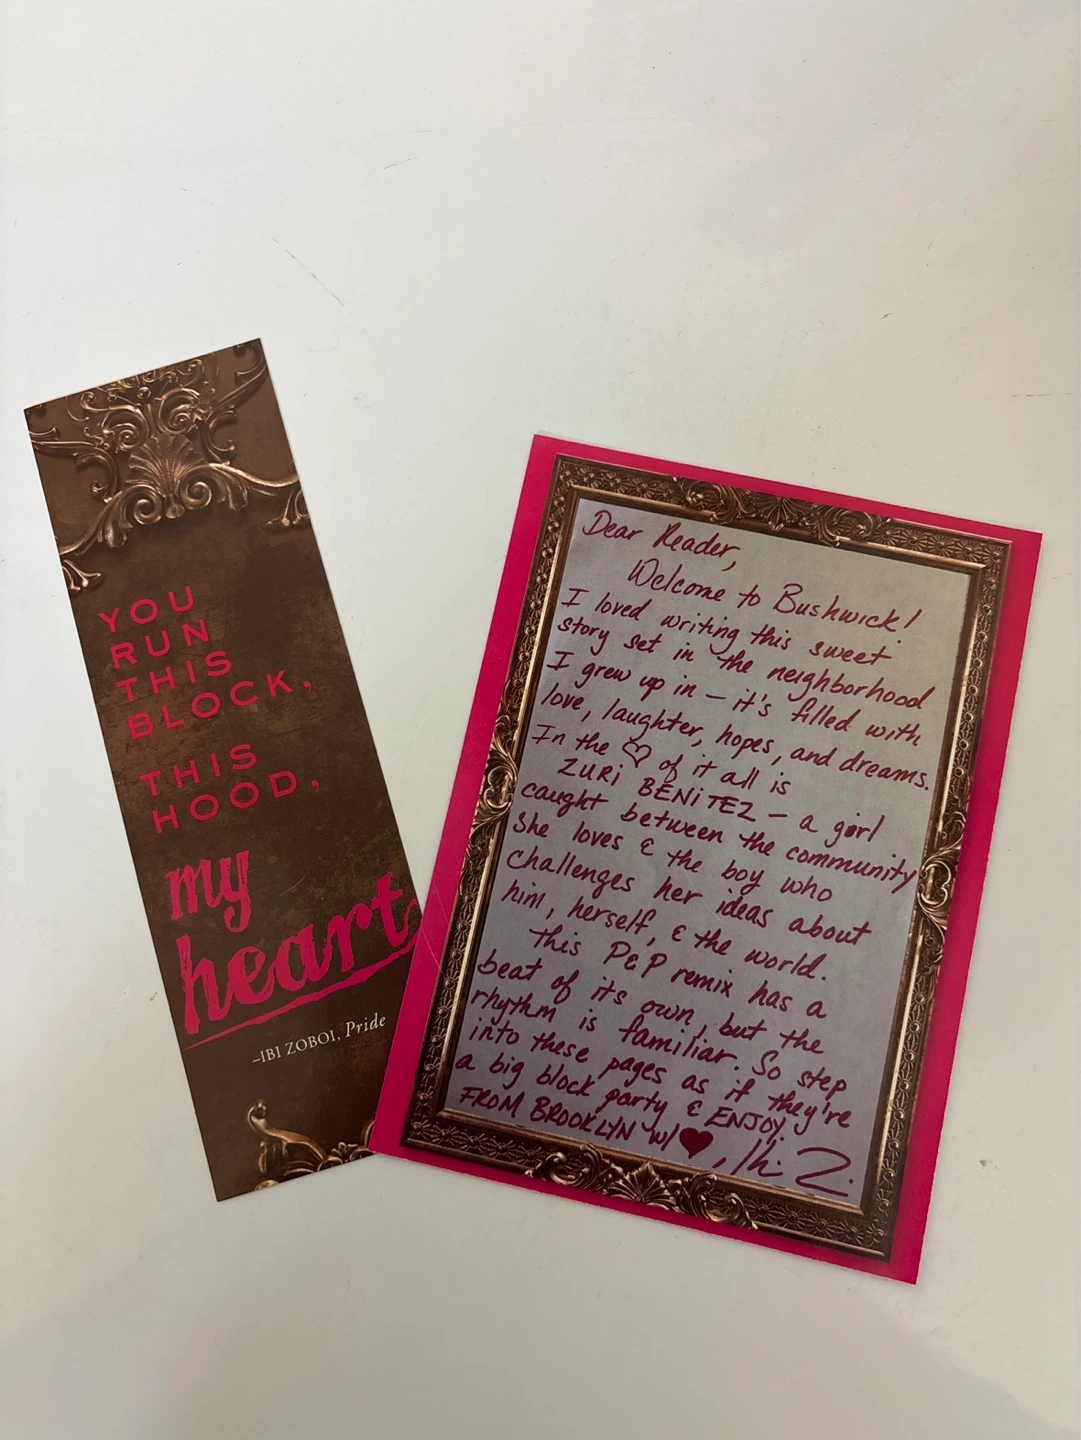 YOU
RUN
THIS
BLOCK,
THIS
HOOD,
my
heart
–IBI ZOBOI, Pride
Dear Reader,
Welcome to Bushwick!
I loved writing this sweet
story set in the neighborhood
I grew up in — it's filled with
love, laughter, hopes, and dreams.
In the ♡ of it all is
ZURi BENiTEZ — a girl
caught between the community
she loves & the boy who
challenges her ideas about
him, herself, & the world.
this P&P remix has a
beat of its own, but the
rhythm is familiar. So step
into these pages as if they're
a big block party & ENJOY!
FROM BROOKLYN w/ ♥, Ibi Z.